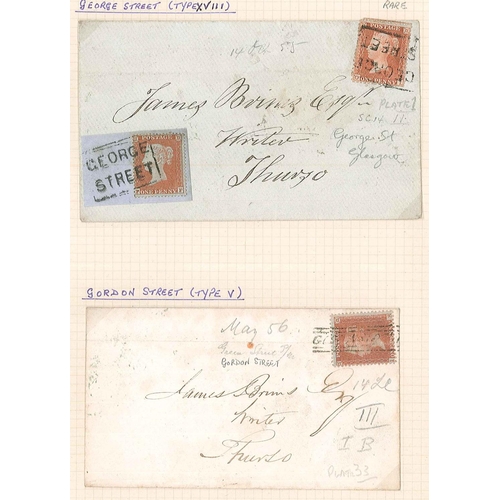 GEORGE STREET (TYPE XVIII)
RARE
14 Oct 55
GEORGE
STREET
James Brims Esqr
PLATE 1
SC14 II
Writer
George St
Glasgow
Thurso
POSTAGE
ONE PENNY
GEORGE
STREET
GORDON STREET (TYPE V)
May 56
GORDON STREET
James Brims Esq
Writer
III
Thurso
I B
PLATE 33